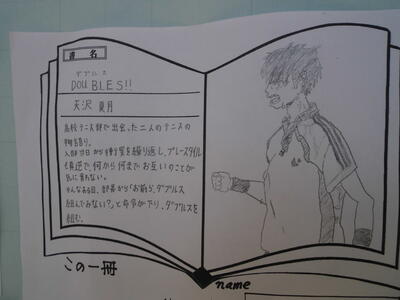 書名
ダブルス
DOUBLES!!
天沢 夏月
高校テニス部で出会った二人のテニスの
物語。
入部初日から衝突を繰り返し、プレースタイル
は真逆で、何から何までお互いのことが
気に食わない。
そんなある日、部長から「お前ら、ダブルス
組んでみない?」と命令が下り、ダブルスを
組む。
この一冊
name